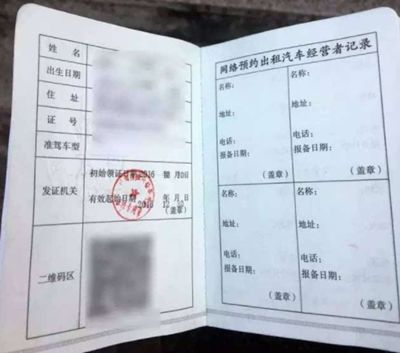 姓 名
出生日期
住 址
证 号
准驾车型
发证机关
初始领证日期2016 年 月 日
有效起始日期
2016 年 月 日
(盖章)
二维码区
网络预约出租汽车经营者记录
名称：
地址：
电话：
报备日期：
(盖章)
名称：
地址：
电话：
报备日期：
(盖章)
名称：
地址：
电话：
报备日期：
(盖章)
名称：
地址：
电话：
报备日期：
(盖章)